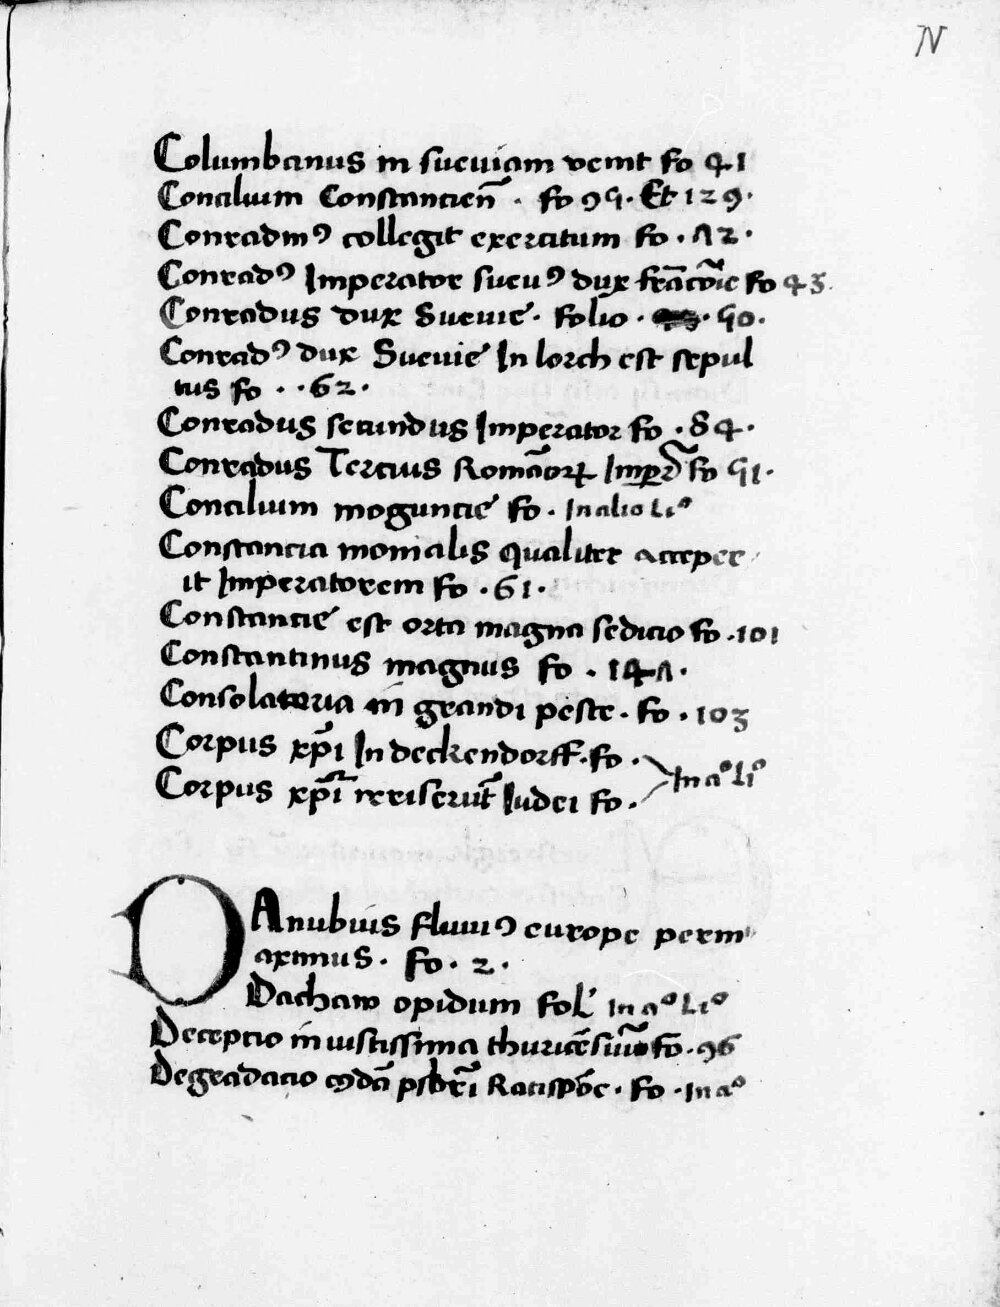 IV
Columbanus in sueuiam venit fo 41
Concilium Constancien̄ . fo 95 . Et 129 .
Conradinꝰ collegit exercitum fo . 72 .
Conradꝰ Imperator sueuꝰ dux frācōie fo 43
Conradus dux Sueuie . folio . 50 .
Conradꝰ dux Sueuie In lorch est sepul
tus fo . . 62 .
Conradus secundus Imperator fo . 84 .
Conradus Tercius Romāoꝝ Imp̄r fo 51 .
Concilium moguncie fo . In alio Liº
Constancia monialis qualiter acceper
it Imperatorem fo . 61 .
Constancie est orta magna sedicio fo . 101
Constantinus magnus fo . 147 .
Consolatoria in grandi peste . fo . 103
Corpus xp̄i In deckendorff . fo .
In aº liº
Corpus xp̄i irriserūt Iudei fo .
DAnubius fluuiꝰ europe perm
aximus . fo . 2 .
Dachaw opidum fol In aº Liº
Decepcio iniustissima thuricēsiū fo . 96
Degradacio cꝰdā p̄sbrī Ratispōe . fo . In aº